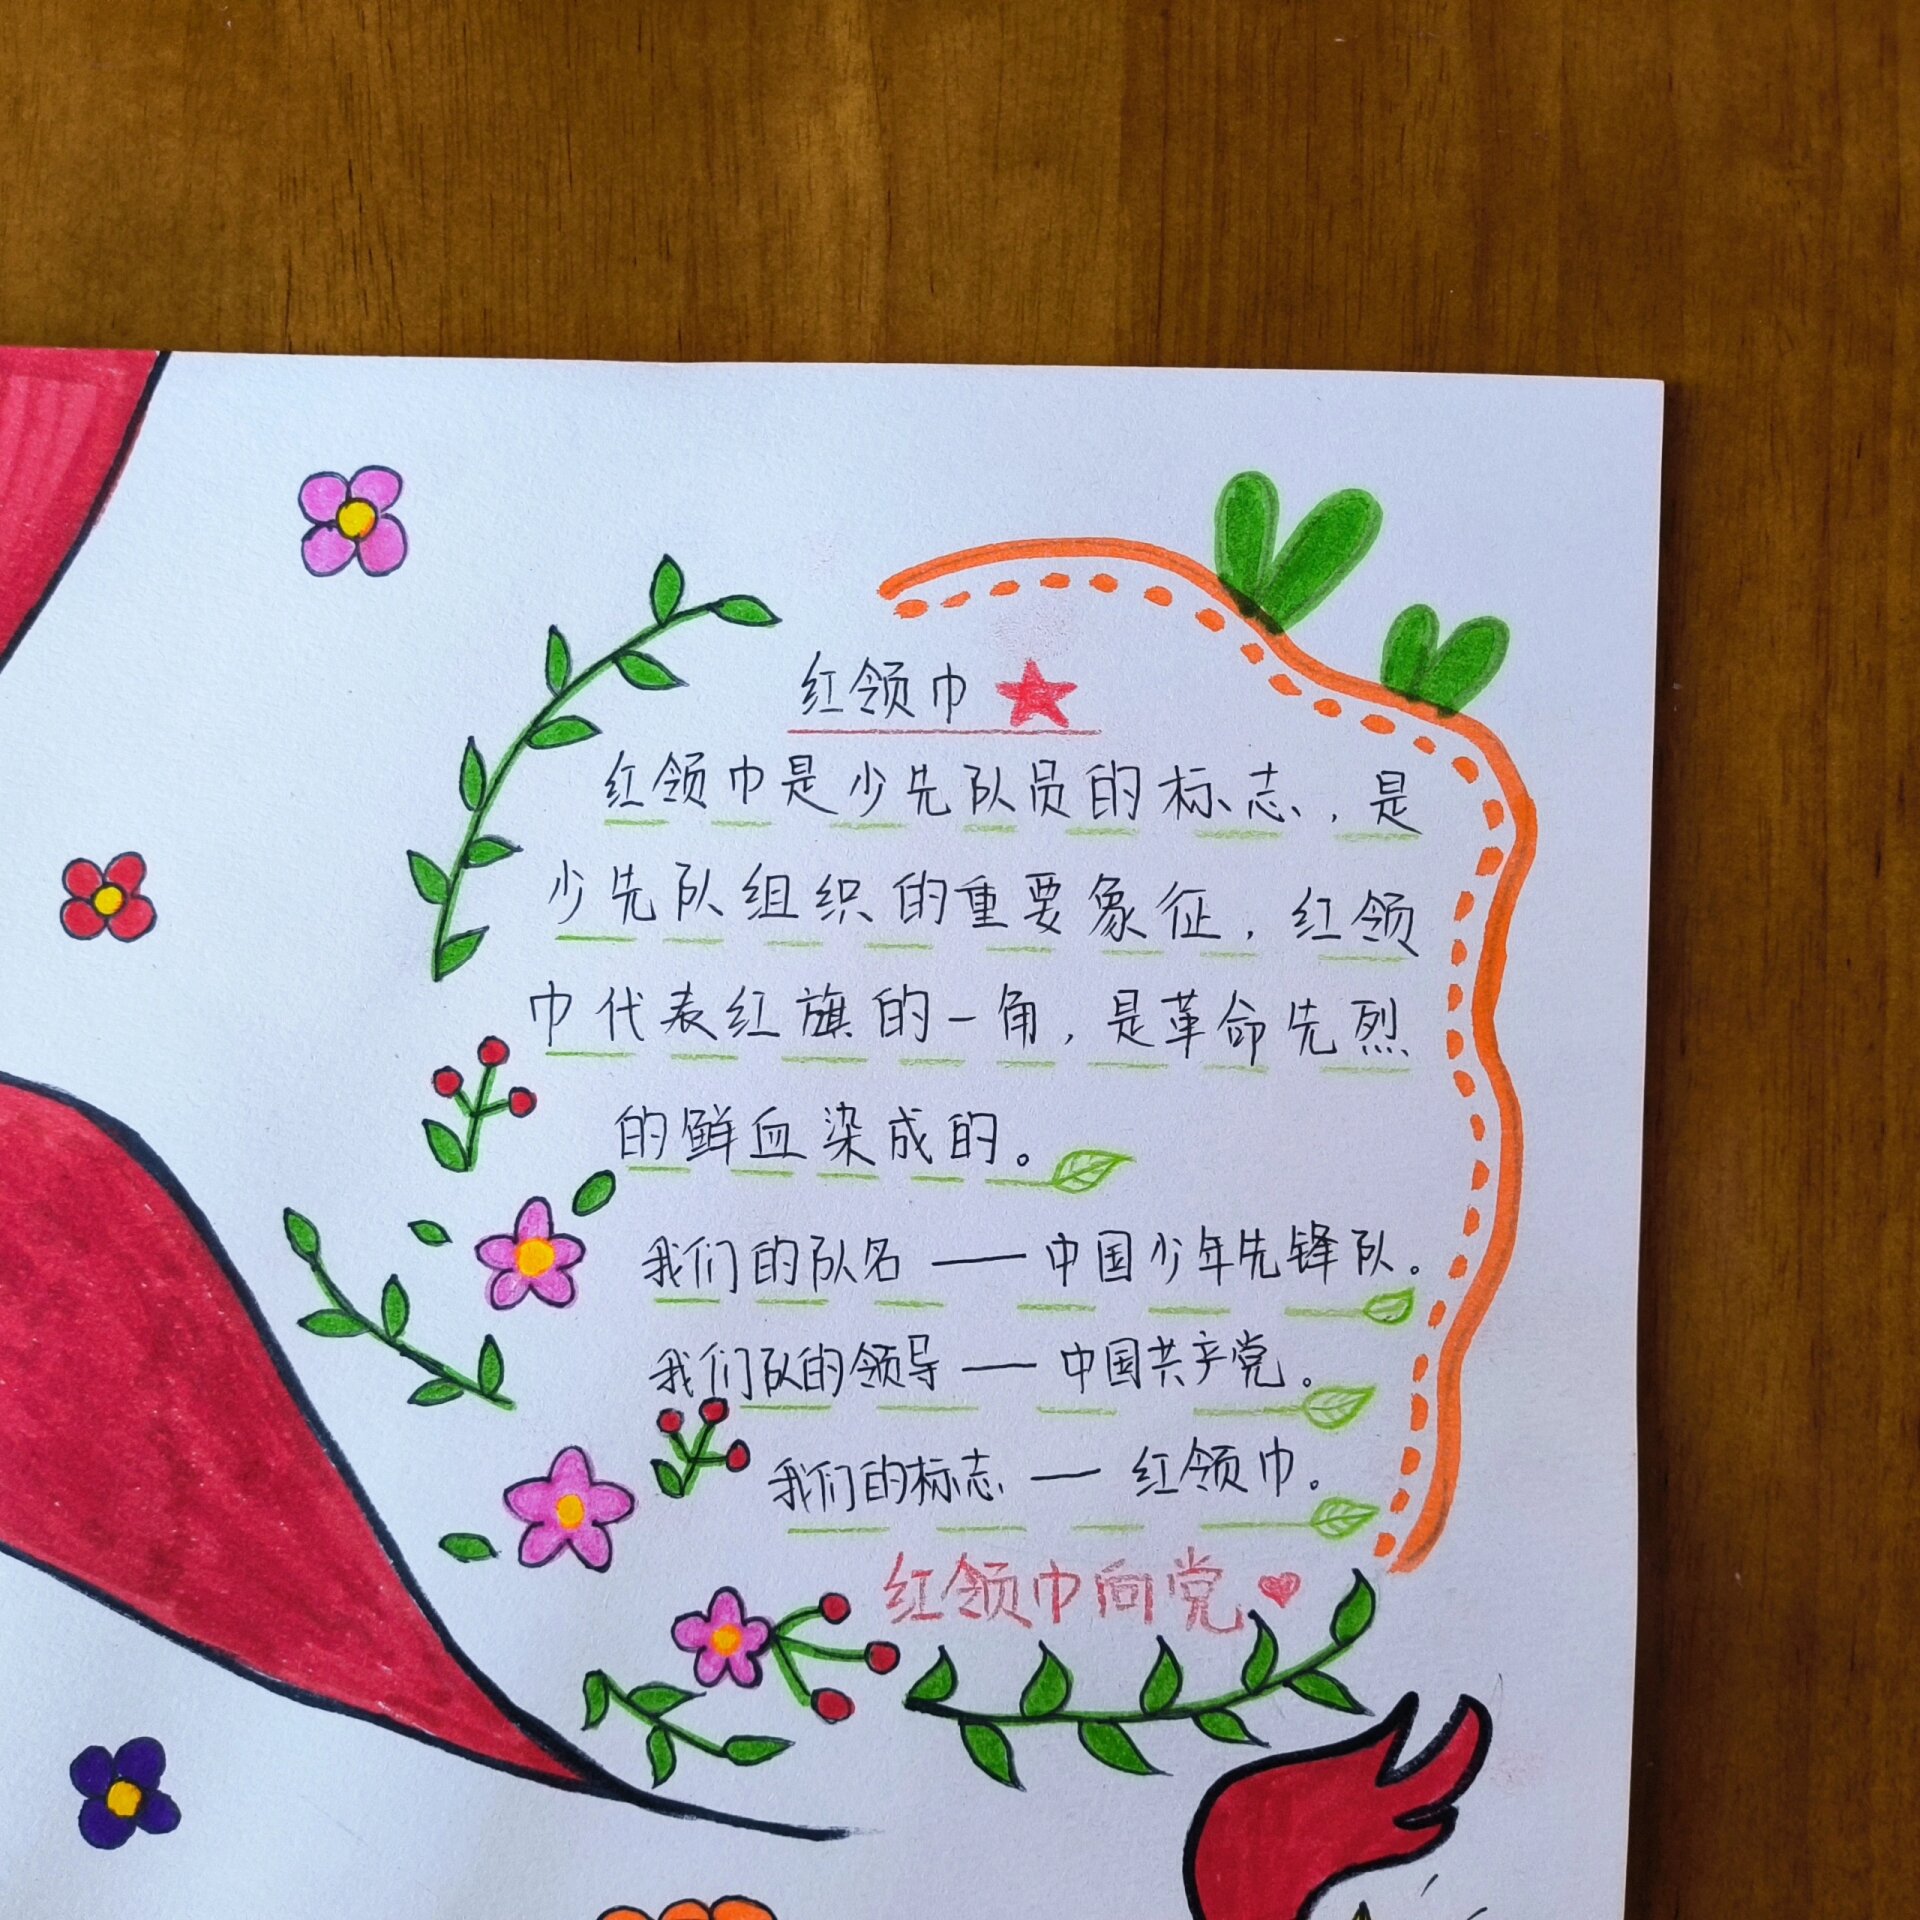 红领巾
红领巾是少先队员的标志，是
少先队组织的重要象征，红领
巾代表红旗的一角，是革命先烈
的鲜血染成的。
我们的队名——中国少年先锋队。
我们队的领导——中国共产党。
我们的标志——红领巾。
红领巾向党